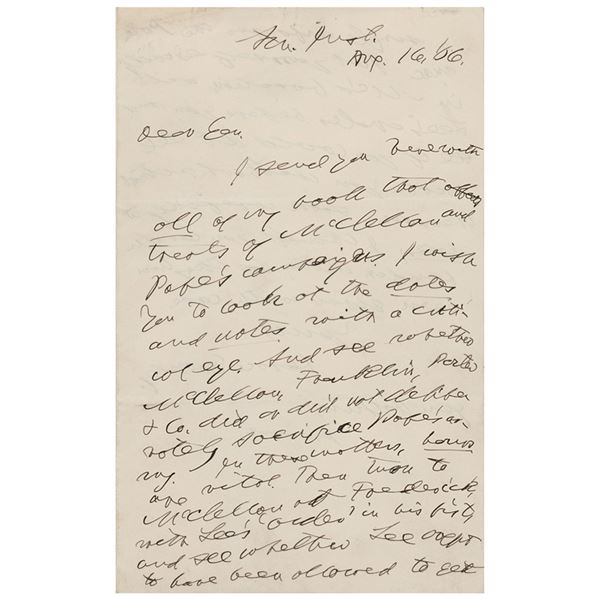 Am. Inst.
Aug. 16, '06.
Dear Gen.
I send you herewith
all of my book that
treats of McClellan and
Pope's campaigns. I wish
you to look at the dates
and notes with a criti-
cal eye. And see whether
McClellan, Franklin, Porter
& Co. did or did not delibe-
rately sacrifice Pope's ar-
my. In these matters, hours
are vital. Then turn to
McClellan at Frederick,
with Lee's "order" in his fist,
and see whether Lee ought
to have been allowed to get